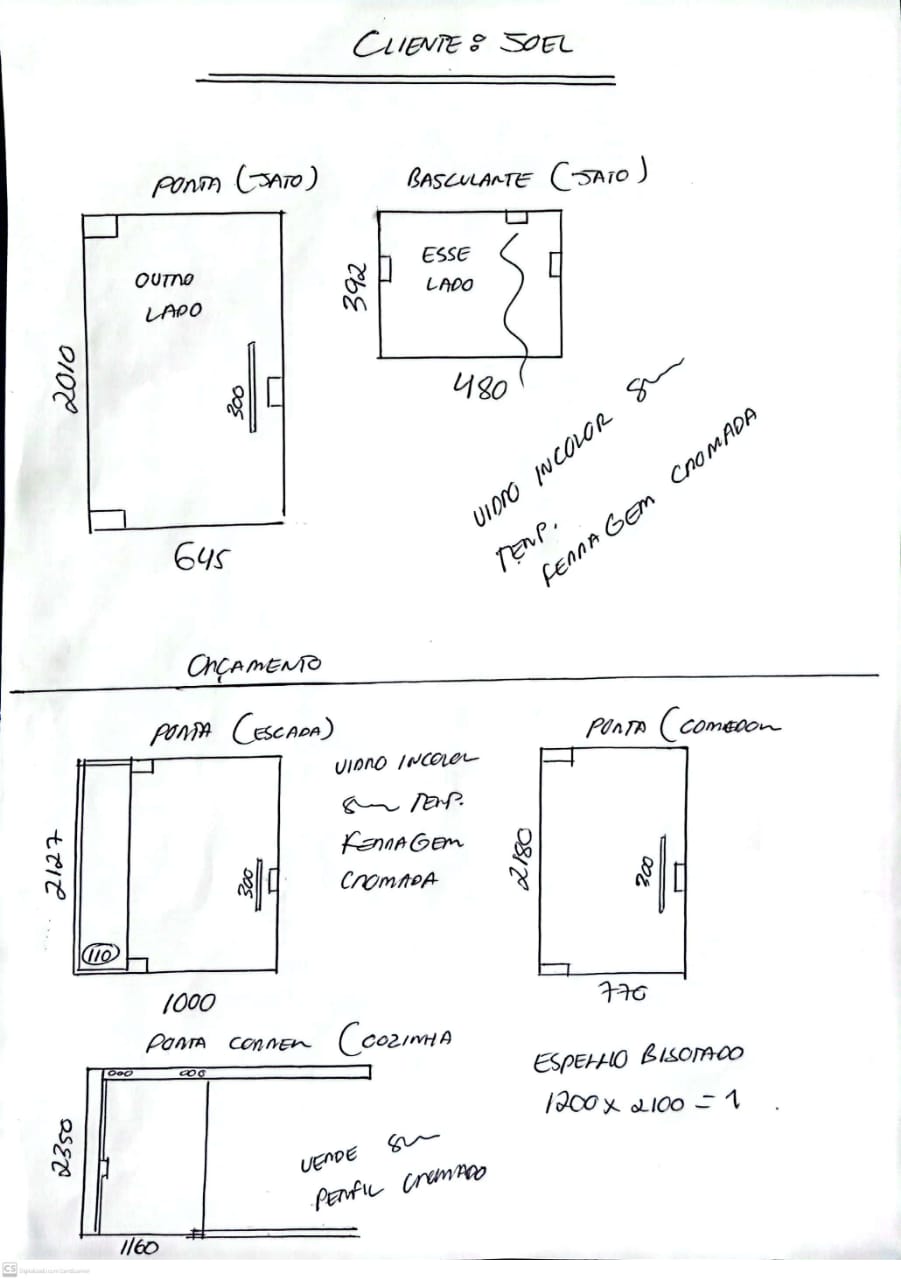 CLIENTE: JOEL
PORTA (JATO)
BASCULANTE (JATO)
OUTRO
LADO
2010
300
645
ESSE
LADO
392
480
VIDRO INCOLOR 8m
TEMP.
FERRAGEM CROMADA
ORÇAMENTO
PORTA (ESCADA)
2127
110
300
1000
VIDRO INCOLOR
8m TEMP.
FERRAGEM
CROMADA
PORTA (COMEDOR
2180
300
770
PORTA CORRER (COZINHA
2350
1160
VERDE 8m
PERFIL CROMADO
ESPELHO BISOTADO
1200 x 2100 = 1
CS